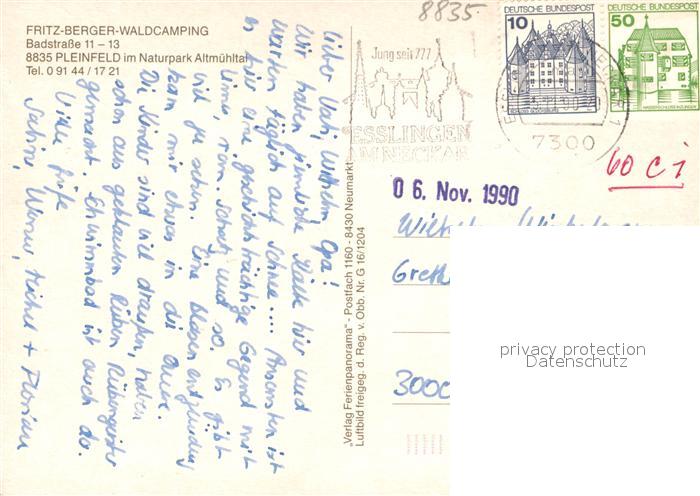 8835
FRITZ-BERGER-WALDCAMPING
Badstraße 11 – 13
8835 PLEINFELD im Naturpark Altmühltal
Tel. 0 91 44 / 17 21
Lieber Wilhelm, Opa!
Wir haben ziemliche Kälte hier und
warten täglich auf Schnee.... Ansonsten ist
es hier eine geschichtsträchtige Gegend mit
Limes, röm. Schatz und so. Es gibt
viel zu sehen. Eine Blasenentzündung
kam mir etwas in die Quere.
Die Kinder sind viel draußen, haben
schon aus geklauten Rüben Rübengeister
gemacht. Schwimmbad ist auch da.
Viele Grüße
Sabine, Werner, Michel + Florian
"Verlag Ferienpanorama" - Postfach 1160 - 8430 Neumarkt
Luftbild freigeg. d. Reg. v. Obb. Nr. G 16/1204
Jung seit 777
ESSLINGEN
AM NECKAR
7300
10 DEUTSCHE BUNDESPOST
DEUTSCHE BUNDESPOST
50
60 C i
0 6. Nov. 1990
3000
privacy protection
Datenschutz